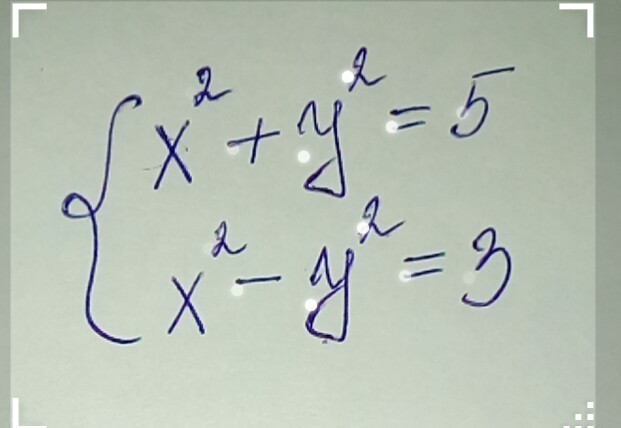 x² + y² = 5
x² - y² = 3